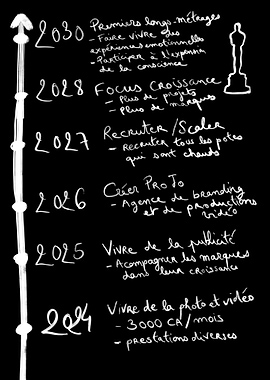 2030
Premiers longs-métrages
- Faire vivre des
expériences émotionnelles
- Participer à l'expansion
de la conscience
2028
Focus croissance
- Plus de projets
- Plus de marques
2027
Recruter/Scaler
- Recruter tous les potes
qui sont chauds
2026
Créer ProJo
- Agence de branding
et de productions
vidéo
2025
Vivre de la publicité
- Accompagner les marques
dans leur croissance
2024
Vivre de la photo et vidéo
- 3000 CA/mois
- prestations diverses